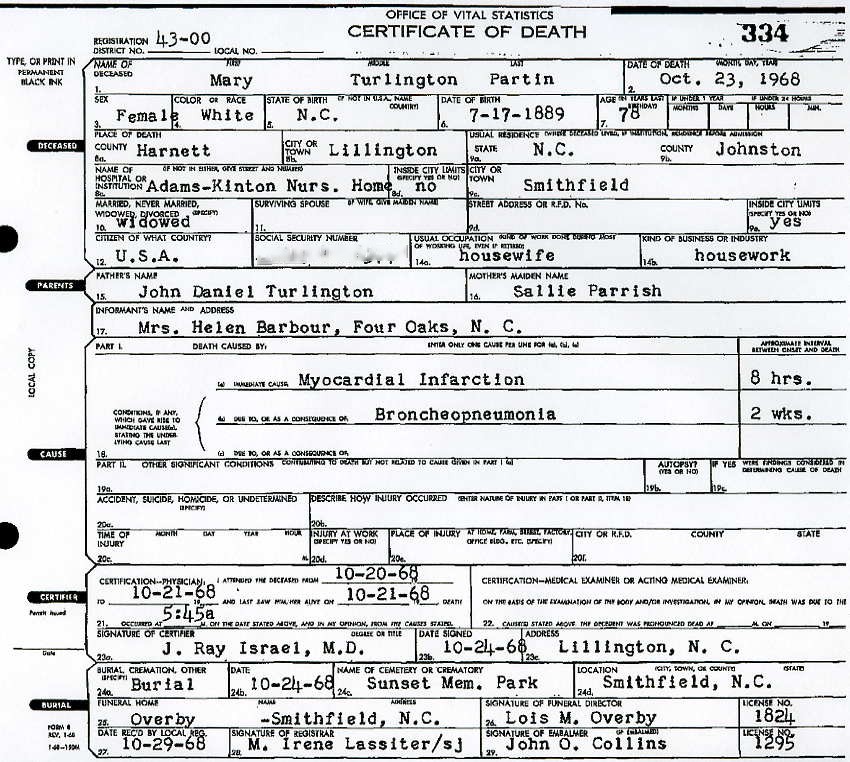 OFFICE OF VITAL STATISTICS
CERTIFICATE OF DEATH
334
REGISTRATION DISTRICT NO. 43-00 LOCAL NO.
TYPE, OR PRINT IN PERMANENT BLACK INK
NAME OF DECEASED FIRST MIDDLE LAST DATE OF DEATH (MONTH, DAY, YEAR)
1. Mary Turlington Partin 2. Oct. 23, 1968
SEX COLOR OR RACE STATE OF BIRTH (IF NOT IN U.S.A. NAME COUNTRY) DATE OF BIRTH AGE (IN YEARS LAST BIRTHDAY) IF UNDER 1 YEAR IF UNDER 24 HOURS
MONTHS DAYS HOURS MIN.
3. Female 4. White 5. N.C. 6. 7-17-1889 7. 78
DECEASED
PLACE OF DEATH USUAL RESIDENCE (WHERE DECEASED LIVED, IF INSTITUTION, RESIDENCE BEFORE ADMISSION)
COUNTY Harnett CITY OR TOWN Lillington STATE N.C. COUNTY Johnston
8a. 8b. 9a. 9b.
NAME OF HOSPITAL OR INSTITUTION (IF NOT IN EITHER, GIVE STREET AND NUMBER) INSIDE CITY LIMITS (SPECIFY YES OR NO) CITY OR TOWN
8c. Adams-Kinton Nurs. Home 8d. no 9c. Smithfield
MARRIED, NEVER MARRIED, WIDOWED, DIVORCED (SPECIFY) SURVIVING SPOUSE (IF WIFE, GIVE MAIDEN NAME) STREET ADDRESS OR R.F.D. No. INSIDE CITY LIMITS (SPECIFY YES OR NO)
10. widowed 11. 9d. 9e. yes
CITIZEN OF WHAT COUNTRY? SOCIAL SECURITY NUMBER USUAL OCCUPATION (KIND OF WORK DONE DURING MOST OF WORKING LIFE, EVEN IF RETIRED) KIND OF BUSINESS OR INDUSTRY
12. U.S.A. 14a. housewife 14b. housework
PARENTS
FATHER'S NAME MOTHER'S MAIDEN NAME
15. John Daniel Turlington 16. Sallie Parrish
INFORMANT'S NAME AND ADDRESS
17. Mrs. Helen Barbour, Four Oaks, N. C.
LOCAL COPY
PART I. DEATH CAUSED BY: ENTER ONLY ONE CAUSE PER LINE FOR (a), (b), (c) APPROXIMATE INTERVAL BETWEEN ONSET AND DEATH
(a) IMMEDIATE CAUSE, Myocardial Infarction 8 hrs.
CONDITIONS, IF ANY, WHICH GAVE RISE TO IMMEDIATE CAUSE(a), STATING THE UNDERLYING CAUSE LAST
(b) DUE TO, OR AS A CONSEQUENCE OF, Broncheopneumonia 2 wks.
18. (c) DUE TO, OR AS A CONSEQUENCE OF,
CAUSE
PART II. OTHER SIGNIFICANT CONDITIONS CONTRIBUTING TO DEATH BUT NOT RELATED TO CAUSE GIVEN IN PART I (a) AUTOPSY? (YES OR NO) IF YES WERE FINDINGS CONSIDERED IN DETERMINING CAUSE OF DEATH
19a. 19b. 19c.
ACCIDENT, SUICIDE, HOMICIDE, OR UNDETERMINED (SPECIFY) DESCRIBE HOW INJURY OCCURRED (ENTER NATURE OF INJURY IN PART I OR PART II, ITEM 18)
20a. 20b.
TIME OF INJURY MONTH DAY YEAR HOUR INJURY AT WORK (SPECIFY YES OR NO) PLACE OF INJURY AT HOME, FARM, STREET, FACTORY, OFFICE BLDG. ETC. (SPECIFY) CITY OR R.F.D. COUNTY STATE
20c. M. 20d. 20e. 20f.
CERTIFIER
Permit Issued
Date
CERTIFICATION—PHYSICIAN: I ATTENDED THE DECEASED FROM 10-20-68 CERTIFICATION—MEDICAL EXAMINER OR ACTING MEDICAL EXAMINER:
TO 10-21-68 19 AND LAST SAW HIM/HER ALIVE ON 10-21-68 DEATH ON THE BASIS OF THE EXAMINATION OF THE BODY AND/OR INVESTIGATION, IN MY OPINION, DEATH WAS DUE TO THE
21. OCCURRED AT 5:45a M. ON THE DATE STATED ABOVE, AND IN MY OPINION, FROM THE CAUSES STATED. 22. CAUSE(S) STATED ABOVE. THE DECEDENT WAS PRONOUNCED DEAD AT M. ON 19
SIGNATURE OF CERTIFIER DEGREE OR TITLE DATE SIGNED ADDRESS
23a. J. Ray Israel, M.D. 23b. 10-24-68 23c. Lillington, N. C.
BURIAL, CREMATION, OTHER (SPECIFY) DATE NAME OF CEMETERY OR CREMATORY LOCATION (CITY, TOWN, OR COUNTY) (STATE)
24a. Burial 24b. 10-24-68 24c. Sunset Mem. Park 24d. Smithfield, N.C.
BURIAL
FUNERAL HOME NAME ADDRESS SIGNATURE OF FUNERAL DIRECTOR LICENSE NO.
25. Overby -Smithfield, N.C. 26. Lois M. Overby 1824
FORM 8
REV. 1-68
DATE REC'D BY LOCAL REG. SIGNATURE OF REGISTRAR SIGNATURE OF EMBALMER (IF EMBALMED) LICENSE NO.
27. 10-29-68 28. M. Irene Lassiter/sj 29. John O. Collins 1295